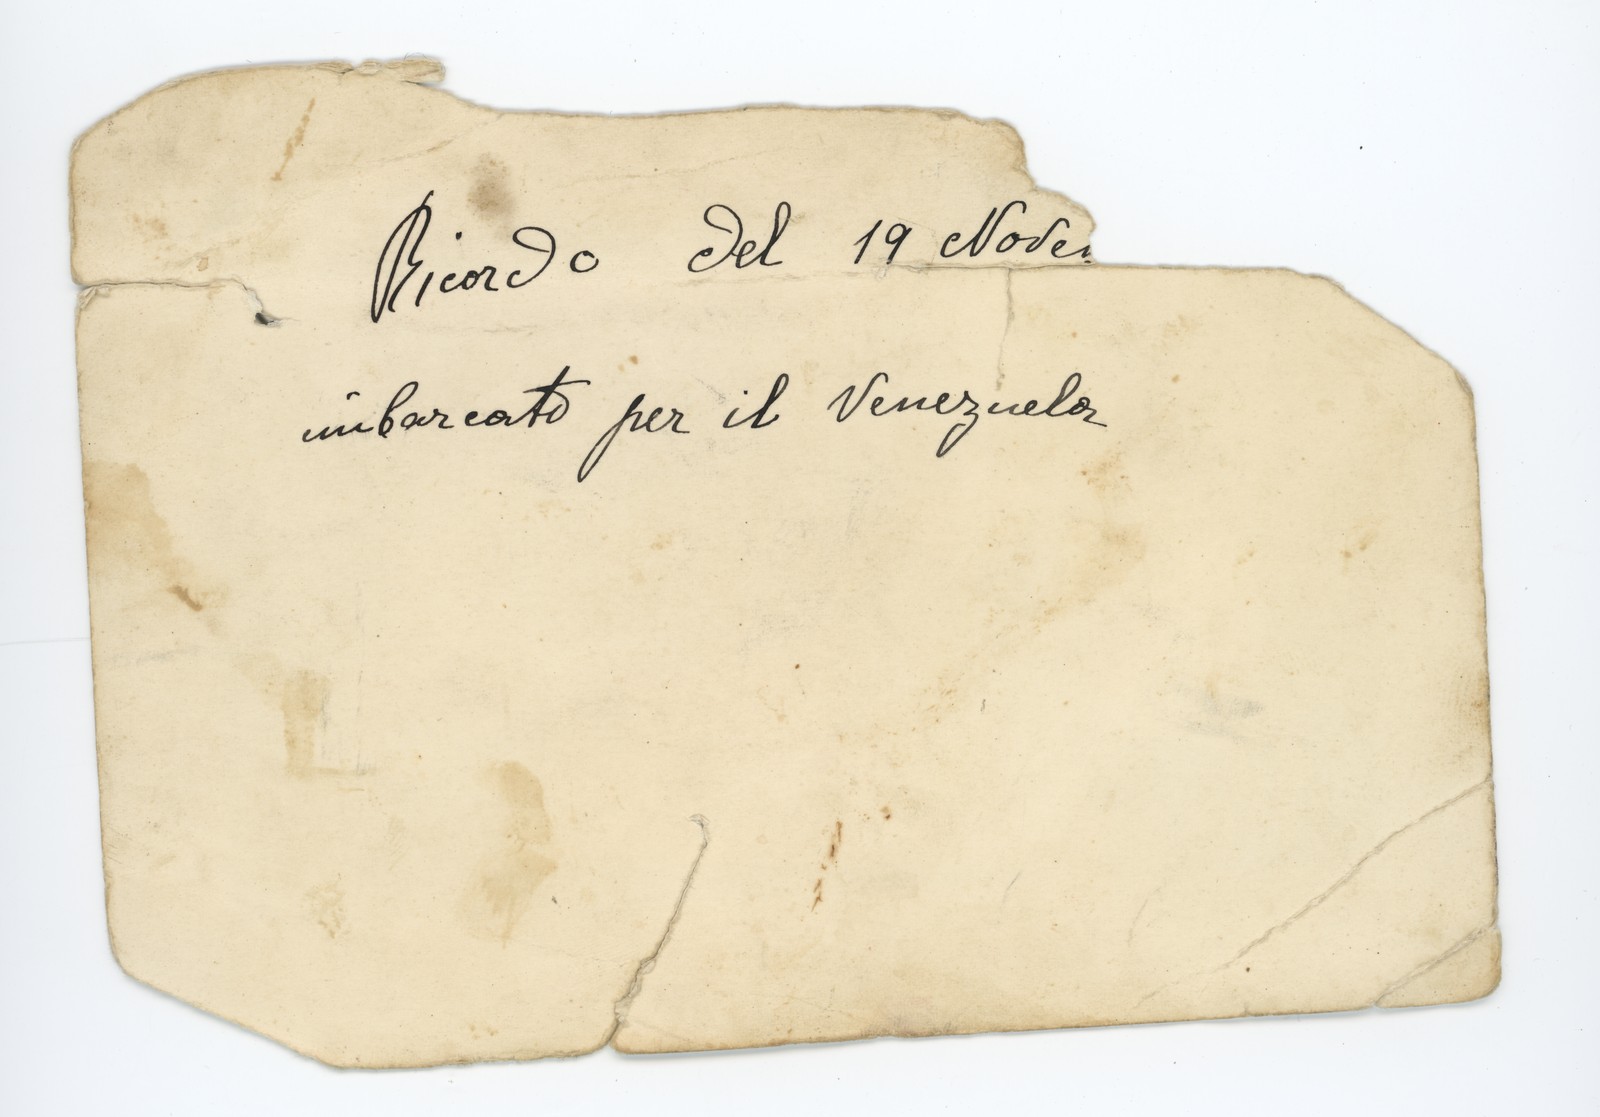 Ricordo del 19 Novem
imbarcato per il Venezuela